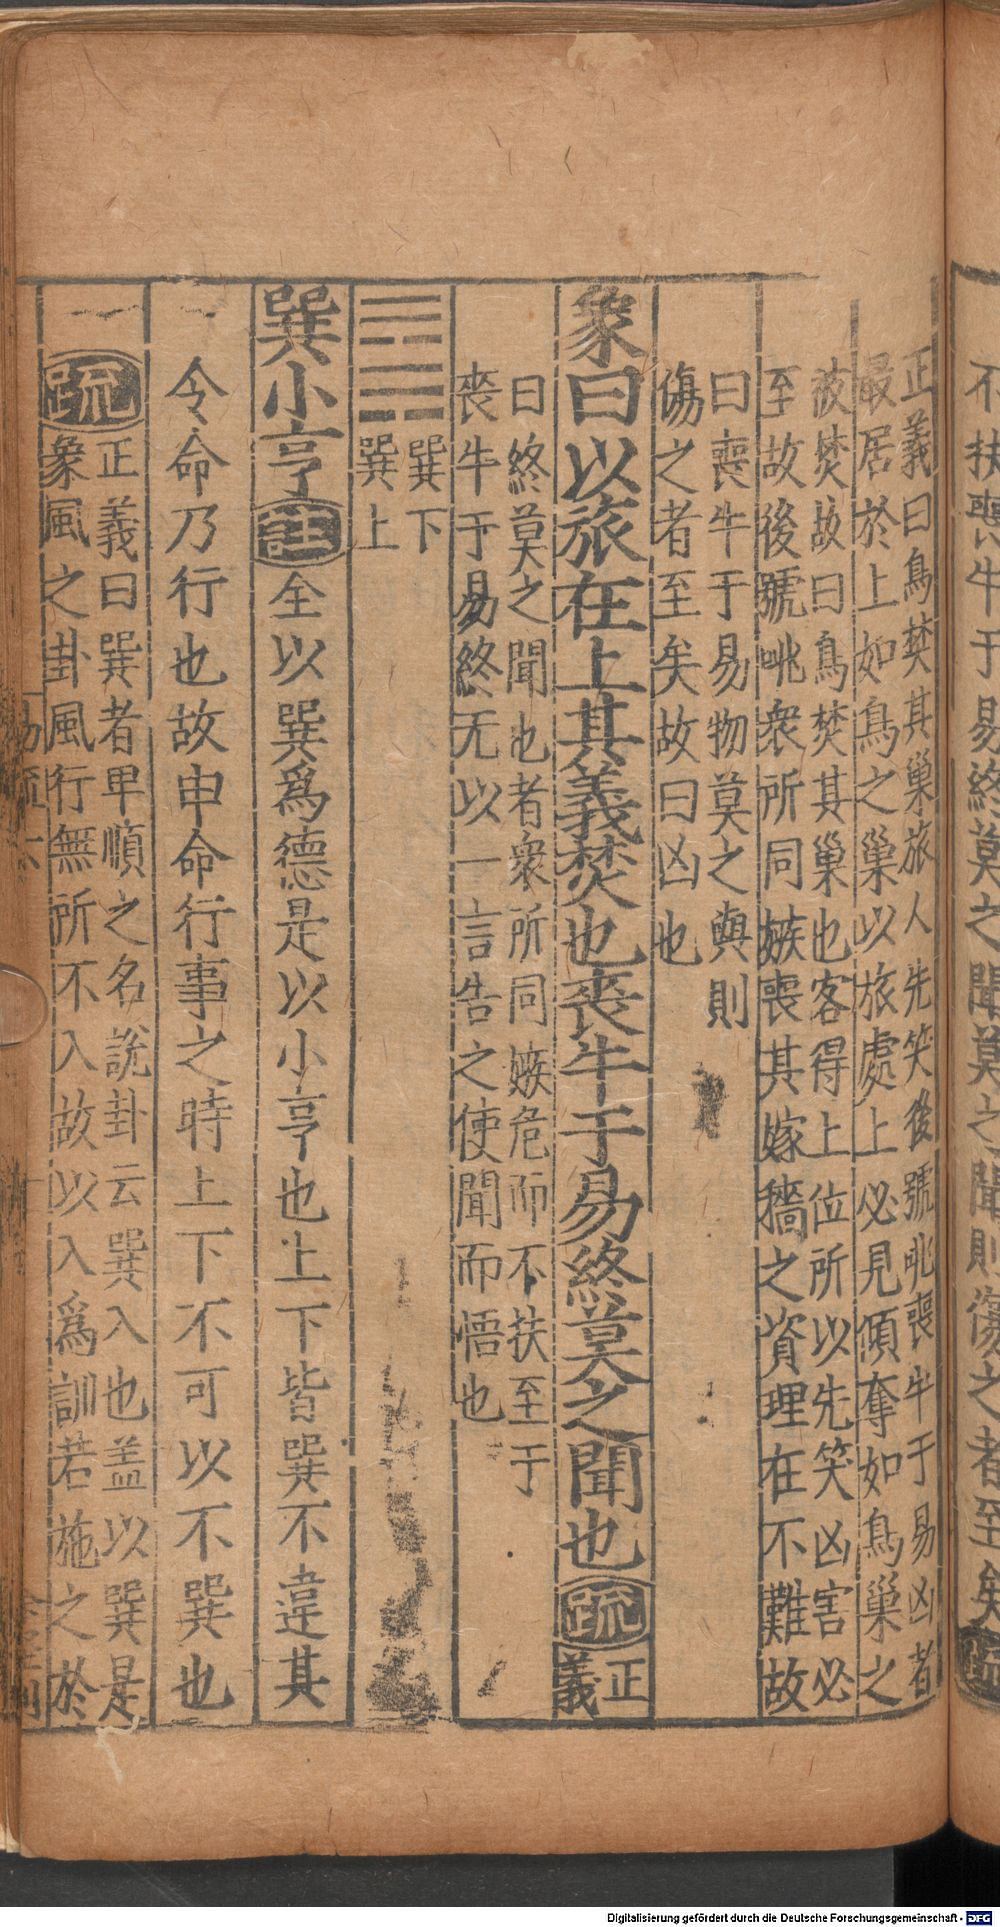 不扶喪牛于易終莫之聞莫之聞則傷之者至矣疏
正義曰鳥焚其巢旅人先笑後號咷喪牛于易凶者
最居於上如鳥之巢以旅處上必見傾奪如鳥巢之
被焚故曰鳥焚其巢也客得上位所以先笑凶害必
至故後號咷衆所同嫉喪其嫁穡之資理在不難故
曰喪牛于易物莫之與則
傷之者至矣故曰凶也
象曰以旅在上其義焚也喪牛于易終莫之聞也疏正義
曰終莫之聞也者衆所同嫉危而不扶至于
喪牛于易終无以一言告之使聞而悟也
巽下
巽上
巽小亨註全以巽爲德是以小亨也上下皆巽不違其
令命乃行也故申命行事之時上下不可以不巽也
疏正義曰巽者卑順之名說卦云巽入也盖以巽是
象風之卦風行無所不入故以入爲訓若施之於
易疏
Digitalisierung gefördert durch die Deutsche Forschungsgemeinschaft - DFG